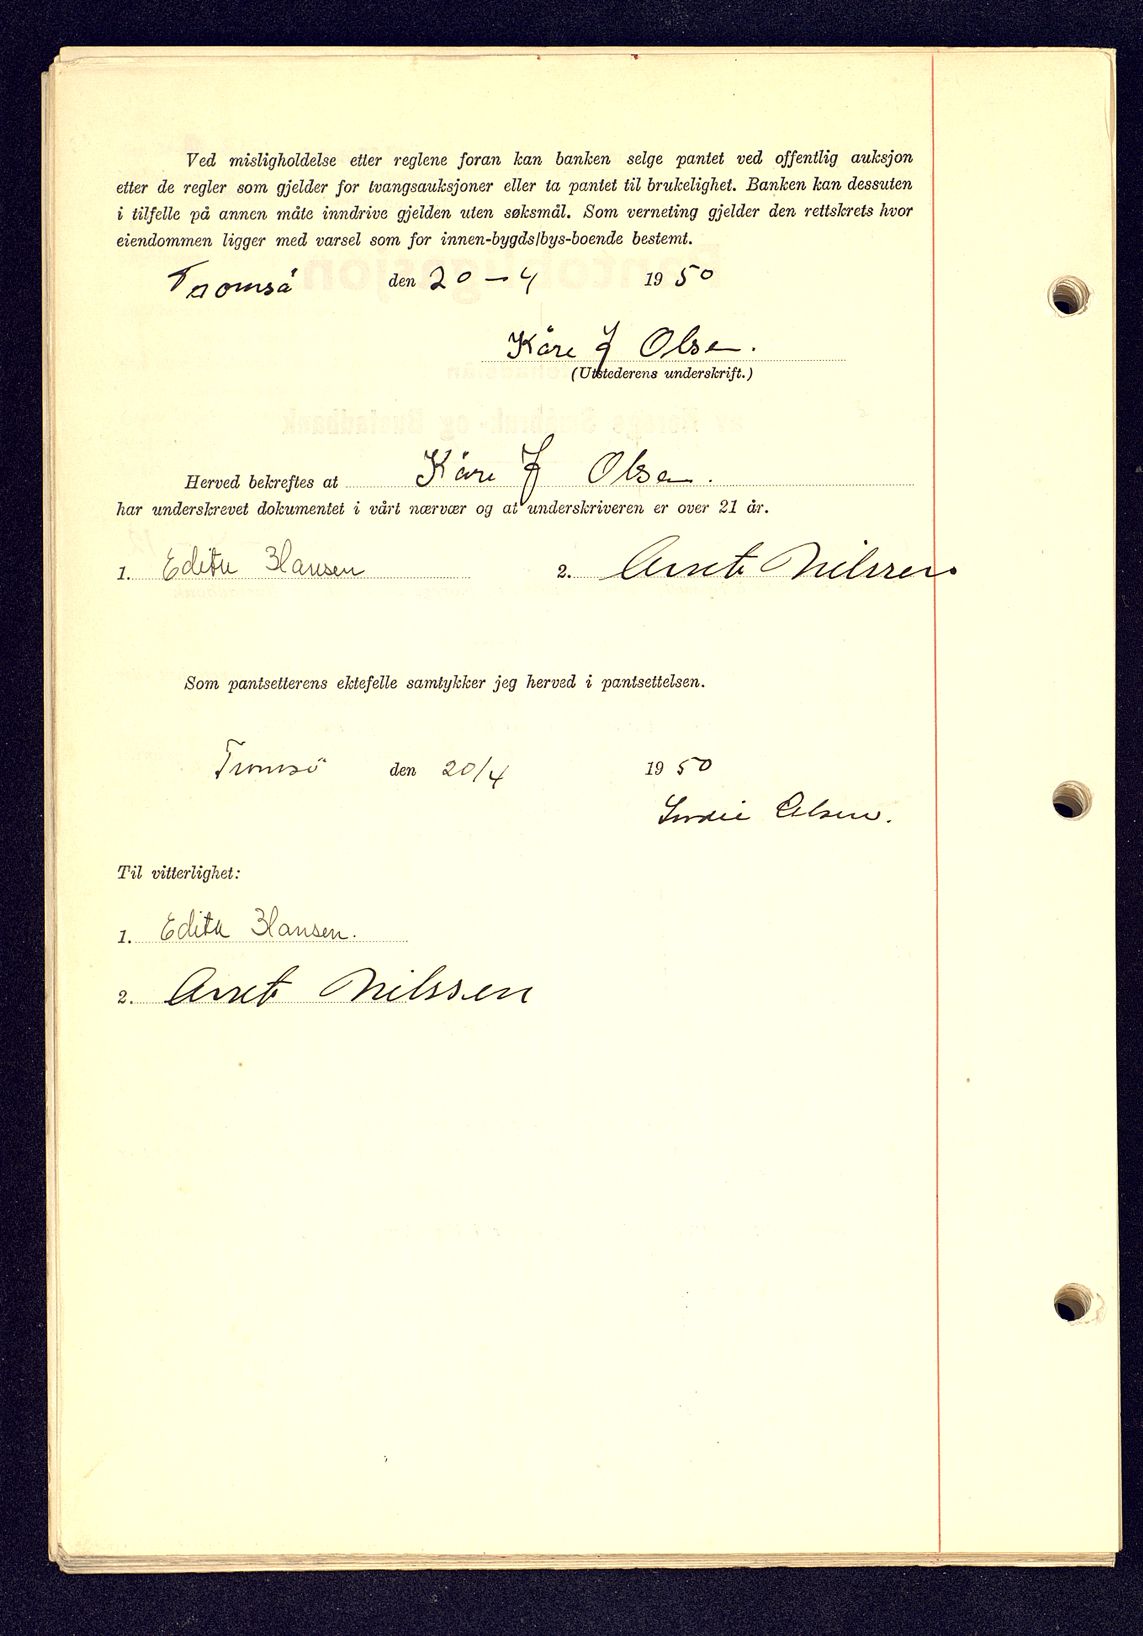 Ved misligholdelse etter reglene foran kan banken selge pantet ved offentlig auksjon
etter de regler som gjelder for tvangsauksjoner eller ta pantet til brukelighet. Banken kan dessuten
i tilfelle på annen måte inndrive gjelden uten søksmål. Som verneting gjelder den rettskrets hvor
eiendommen ligger med varsel som for innen-bygds/bys-boende bestemt.
Tromsö den 20 - 4 1950
Kåre J Olsen.
(Utstederens underskrift.)
Herved bekreftes at Kåre J Olsen.
har underskrevet dokumentet i vårt nærvær og at underskriveren er over 21 år.
1. Edith Hansen 2. Nilssen
Som pantsetterens ektefelle samtykker jeg herved i pantsettelsen.
Tromsö den 20/4 1950
Olsen.
Til vitterlighet:
1. Edith Hansen.
2. Nilssen